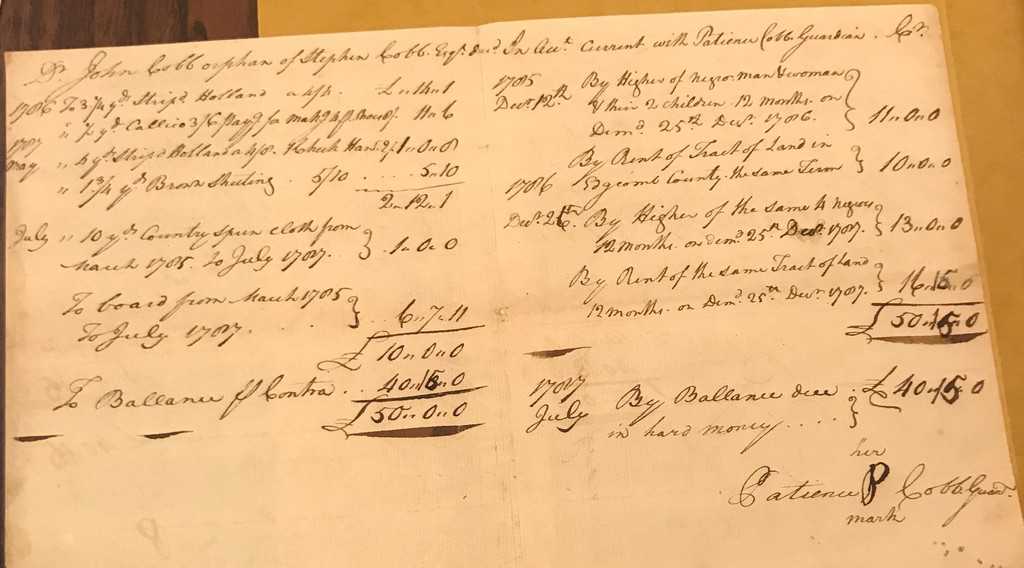 Dr. John Cobb orphan of Stephen Cobb Esqr. decd. In Acct. Current with Patience Cobb Guardian. Cr.
1786 To 3¼ yds Stripd. Holland a 4/4. £ 0..14..1
" ¾ yd Callico 3/6 11..6
1787
May " 4 yds Stripd Holland a 4/8. 1 Check Hand. 1..0..8
" 1¾ yd Brown Sheeting . 5/10 .... 5..10
2..12..1
July " 10 yds Country spun cloth from
March 1785. To July 1787. } 1..0..0
To board from March 1785
To July 1787. . . } .. 6..7..11
£ 10..0..0
To Ballance pr Contra .. 40..15..0
£ 50..0..0
1785
Decr. 12th. By Higher of negro man & woman
& their 2 children 12 months. on
Demd. 25th Decr. 1786. } 11..0..0
By Rent of Tract of Land in
Edgcomb County. the same Term } 10..0..0
1786
Decr. 26th By Higher of the same 4 negroes
12 months. on demd. 25th Decr. 1787. } 13..0..0
By Rent of the same Tract of Land
12 months. on Demd. 25th Decr. 1787. } 16..15..0
£ 50..15..0
1787
July By Ballance due
in hard money . . . . } £ 40..15..0
her
Patience P Cobb Guard.
mark